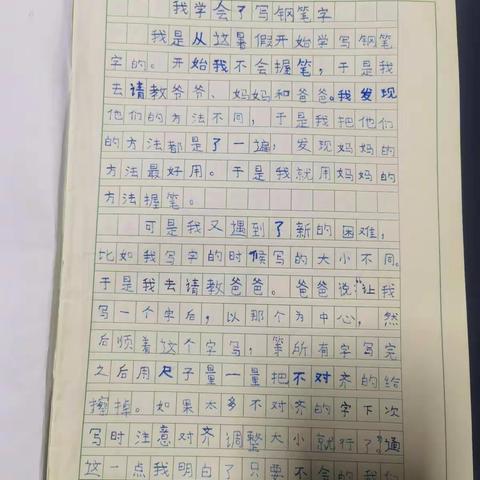 我学会了写钢笔字
我是从这暑假开始学写钢笔
字的。开始我不会握笔，于是我
去请教爷爷、妈妈和爸爸。我发现
他们的方法不同，于是我把他们
的方法都是了一遍，发现妈妈的
方法最好用。于是我就用妈妈的
方法握笔。
可是我又遇到了新的困难，
比如我写字的时候写的大小不同。
于是我去请教爸爸。爸爸说“让我
写一个字后，以那个为中心，然
后顺着这个字写，等所有字写完
之后用尺子量一量把不对齐的给
擦掉。如果太多不对齐的字下次
写时注意对齐调整大小就行了”通
这一点我明白了只要不会的我们